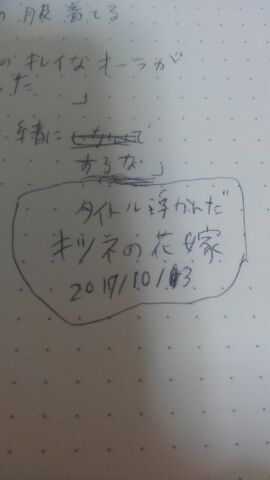 の服着てる
のキレイなオーラが
った
」
するな」
タイトル浮かんだ
キツネの花嫁
2017/10/13